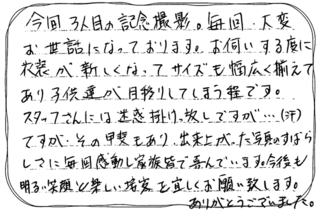 今回3人目の記念撮影。毎回、大変
お世話になっております。お伺いする度に
衣装が新しくなってサイズも幅広く揃えて
あり子供達が目移りしてしまう程です。
スタッフさんには迷惑掛け致しですが…(汗)
ですが、その甲斐もあり、出来上がった写真のすばら
しさに毎回感動し家族皆で喜んでいます。今後も
明るい笑顔と楽しい接客を宜しくお願い致します。
ありがとうございました。